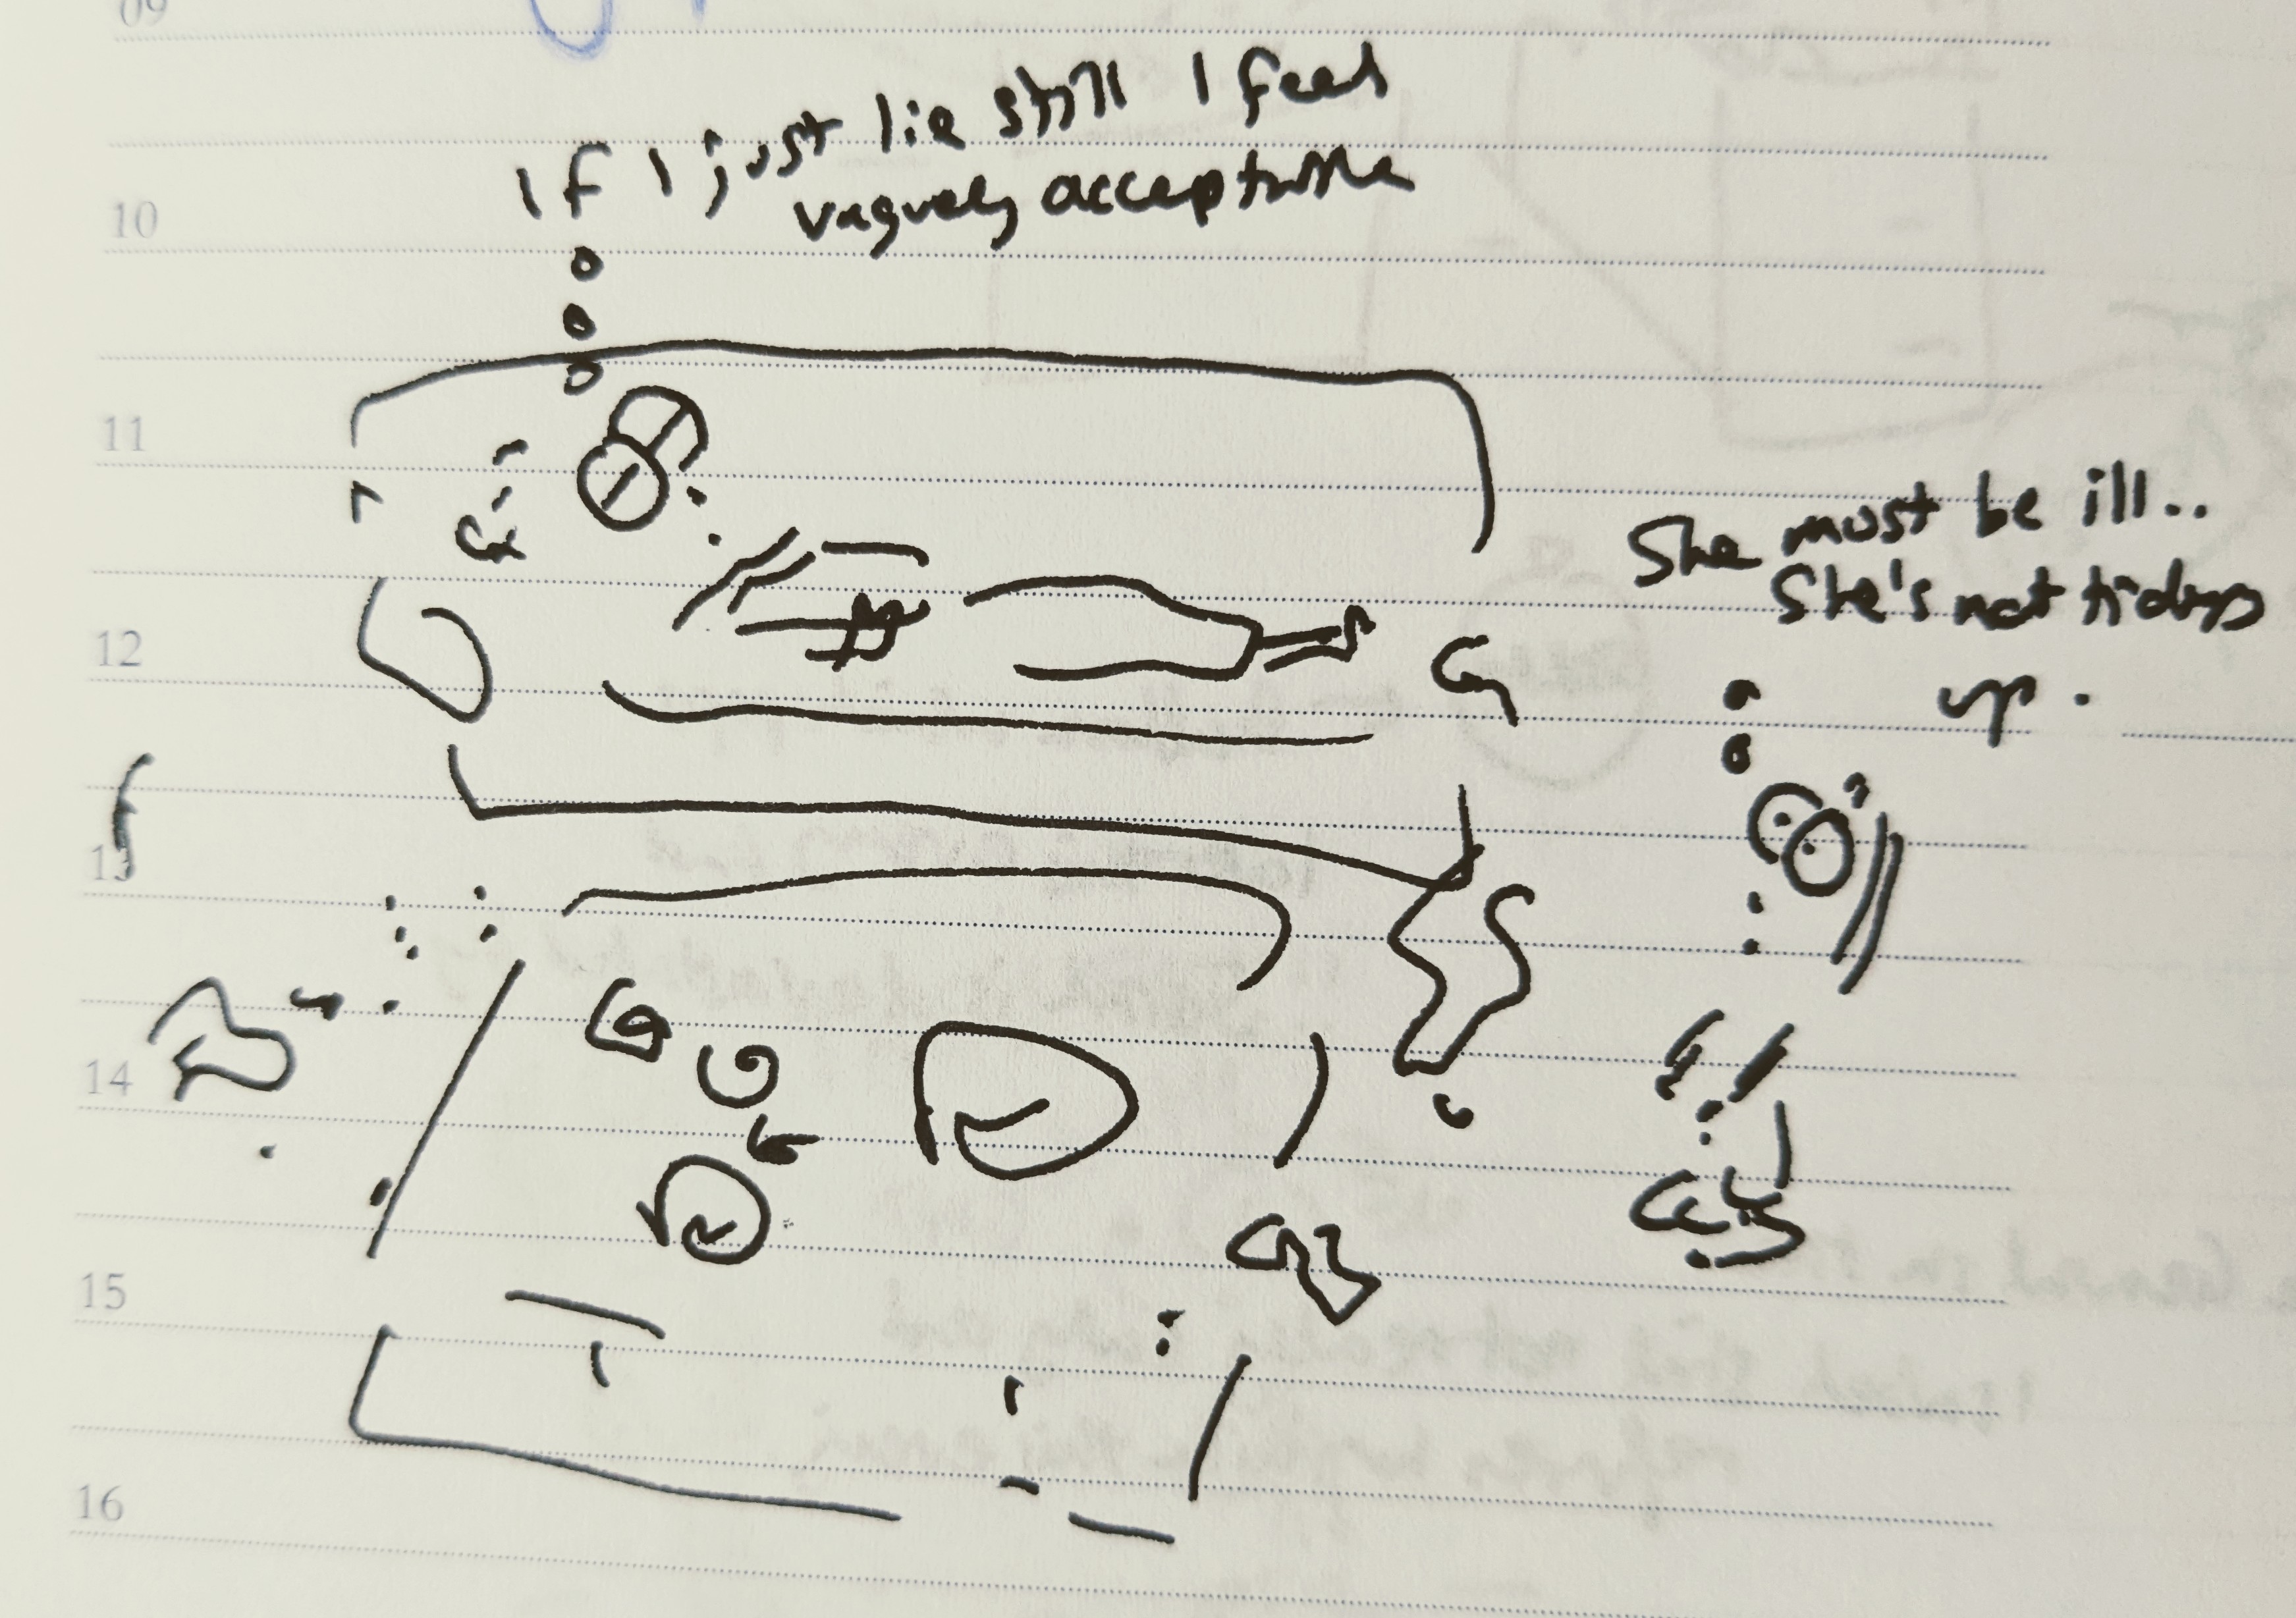 09
If I just lie still I feel
vaguely acceptable
10
11
She must be ill..
She's not tidying
up.
12
13
14
15
16